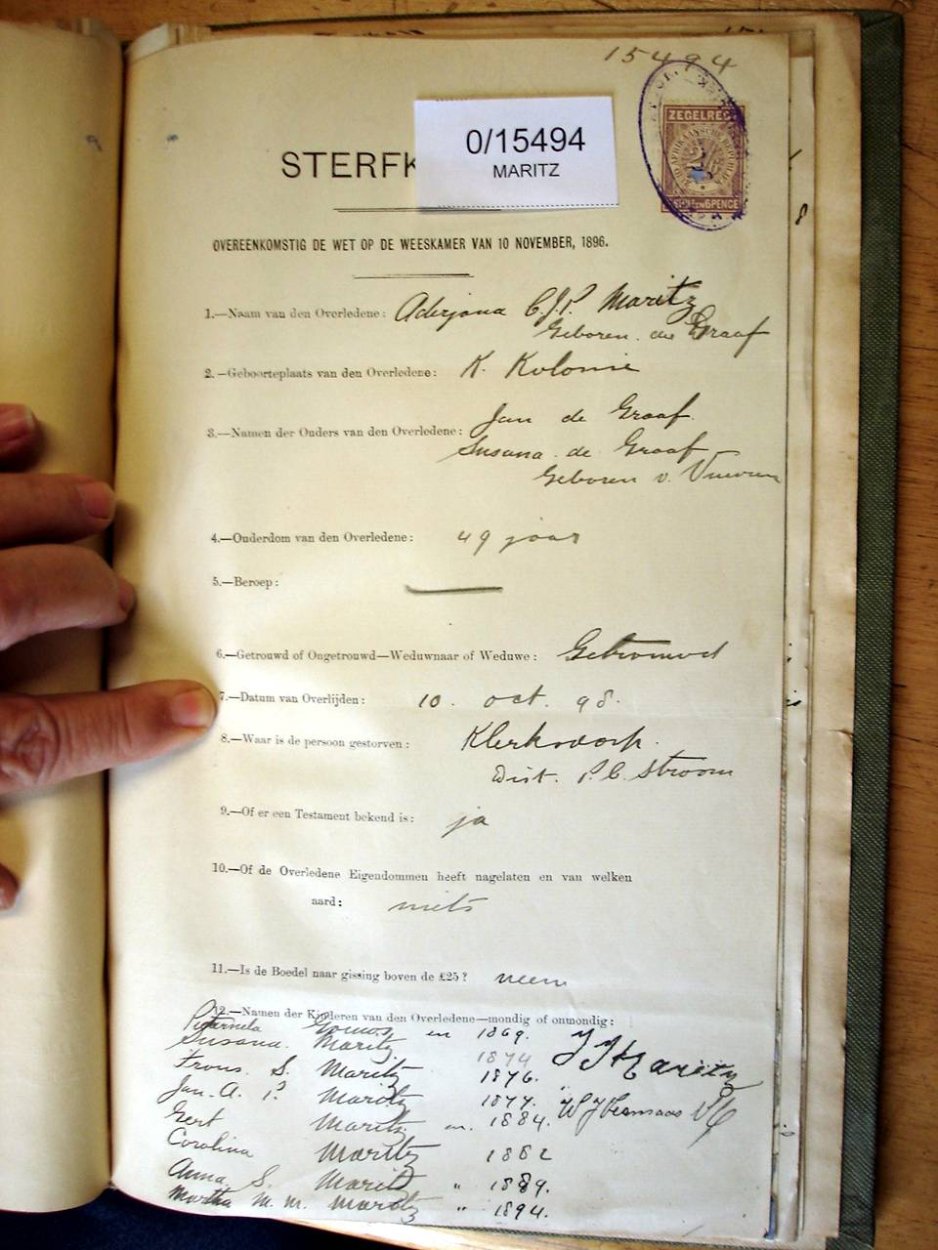 15494
0/15494
MARITZ
STERFK
ZEGELRE
6PENCE
OVEREENKOMSTIG DE WET OP DE WEESKAMER VAN 10 NOVEMBER, 1896.
1.—Naam van den Overledene: Aderjana C.J.P. Maritz
Geboren de Graaf
2.—Geboorteplaats van den Overledene: K. Kolonie
3.—Namen der Ouders van den Overledene: Jan de Graaf
Susana de Graaf
Geboren v.
4.—Ouderdom van den Overledene: 49 jaar
5.—Beroep:
6.—Getrouwd of Ongetrouwd—Weduwnaar of Weduwe: Getrouwd
7.—Datum van Overlijden: 10. oct. 98.
8.—Waar is de persoon gestorven: Klerksdorp.
Dist. P.C. Stroom
9.—Of er een Testament bekend is: ja
10.—Of de Overledene Eigendommen heeft nagelaten en van welken
aard: niets
11.—Is de Boedel naar gissing boven de £25? neen
12.—Namen der Kinderen van den Overledene—mondig of onmondig:
en 1869.
Susana Maritz 1874
Frans S. Maritz 1876.
Jan A. P. Maritz 1877.
Gert Maritz on. 1884.
Carolina Maritz 1882
Anna S. Maritz " 1889.
Martha M. M. Maritz " 1894.
Maritz
W J Vermaas